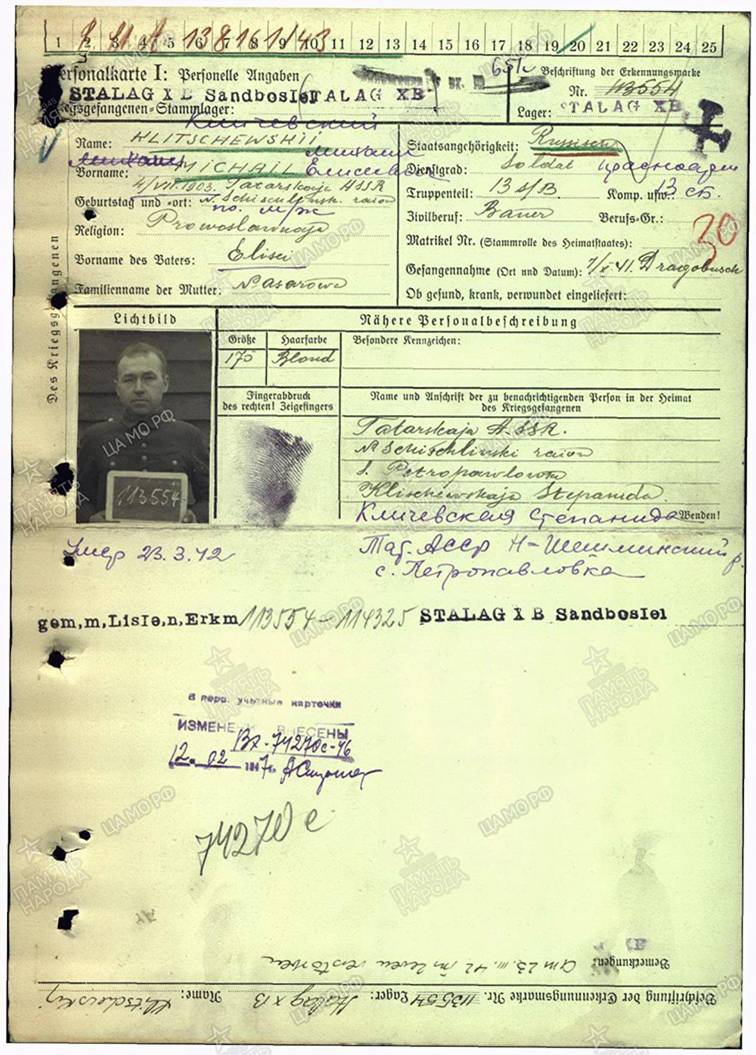 1 2 3 4 5 6 7 8 9 10 11 12 13 14 15 16 17 18 19 20 21 22 23 24 25
138161/43
Personalkarte I: Personelle Angaben
Beschriftung der Erkennungsmarke
STALAG X B Sandbostel STALAG XB
Nr. 113554
Kriegsgefangenen-Stammlager:
Lager: STALAG XB
Кличевский
Name: KLITSCHEWSKII
Staatsangehörigkeit: Russisch
Михаил
Vorname: MICHAIL Елисеевич
Dienstgrad: Soldat Красноарм
4/VII.1903. Tatarskaja ASSR
Geburtstag und -ort: N. Schischlinsk. raion
Truppenteil: 13 s/B Komp. usw.: 13 сб.
по м/ж
Zivilberuf: Bauer Berufs-Gr.:
Religion: Prowoslawnaja
Matrikel Nr. (Stammrolle des Heimatstaates):
30
Vorname des Vaters: Elisei
Gefangennahme (Ort und Datum): 7/X 41. Dragobusch
Familienname der Mutter: Nasarowa
Ob gesund, krank, verwundet eingeliefert:
Des Kriegsgefangenen
Lichtbild
Nähere Personalbeschreibung
Größe Haarfarbe Besondere Kennzeichen:
170 Blond
Fingerabdruck
des rechten! Zeigefingers
Name und Anschrift der zu benachrichtigenden Person in der Heimat
des Kriegsgefangenen
Tatarskaja ASSR.
N Schischlinski raion
s. Petropawlowka
Klischewskaja Stepanida
113554
Кличевская Степанида Wenden!
Умер 23.3.42
Таб. АССР Н-Шешминский р.
с. Петропавловка
gem,m,Liste,n,Erkm 113554-114325 STALAG X B Sandbostel
В перс. учетные карточки
ИЗМЕНЕНИЯ ВНЕСЕНЫ
Вх-74270с-46
12. 02
74270с
Bemerkungen: Am 23.III.42 in verstorben
Beschriftung der Erkennungsmarke Nr. 113554 Lager: Stalag X B Name: Klitschewskij
ПАМЯТЬ НАРОДА
ЦА МО РФ